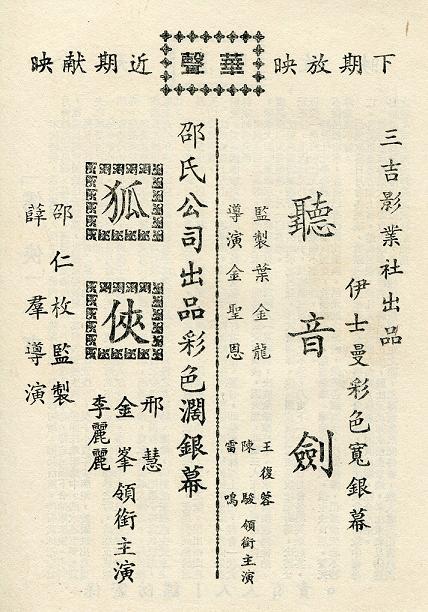 下期放映
華聲
近期献映
三吉影業社出品
伊士曼彩色寬銀幕
聽音劍
監製葉金龍
導演金聖恩
王復蓉
陳駿領銜主演
雷鳴
邵氏公司出品彩色濶銀幕
狐俠
邢慧
金峯領銜主演
李麗麗
邵仁枚監製
薛羣導演